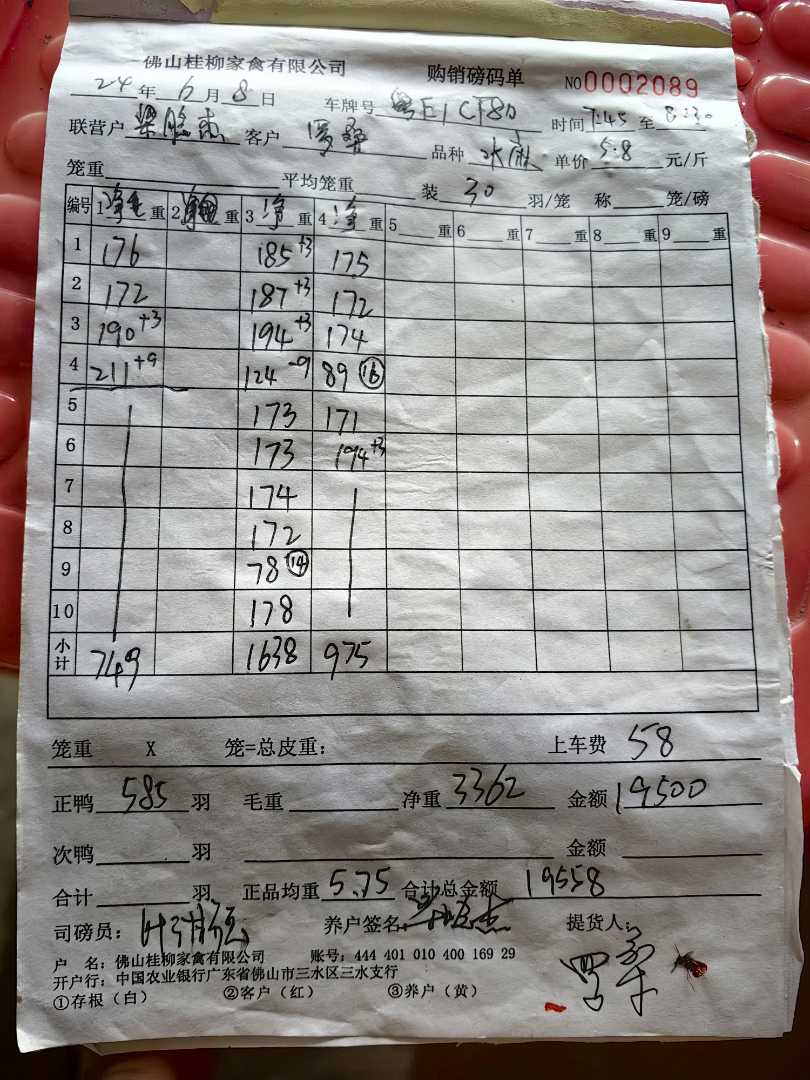 佛山桂柳家禽有限公司 购销磅码单 NO 0002089
24年6月8日 车牌号 粤E 时间7:45至8:30
联营户 客户 罗桑 品种 水麻 单价5.8元/斤
笼重 平均笼重 装30羽/笼 称 笼/磅
编号 1 重 2 重 3净重 4净重 5 重 6 重 7 重 8 重 9 重
1 176 185+3 175
2 172 187+3 172
3 190+3 194+3 174
4 211+9 124-9 89 16
5 173 171
6 173 194+3
7 174
8 172
9 78 14
10 178
小计 749 1638 975
笼重 X 笼=总皮重: 上车费 58
正鸭 585 羽 毛重 净重 3362 金额 19500
次鸭 羽 金额
合计 羽 正品均重 5.75 合计总金额 19558
司磅员: 养户签名: 提货人:
户 名: 佛山桂柳家禽有限公司 账号: 444 401 010 400 169 29
开户行: 中国农业银行广东省佛山市三水区三水支行
①存根（白） ②客户（红） ③养户（黄）